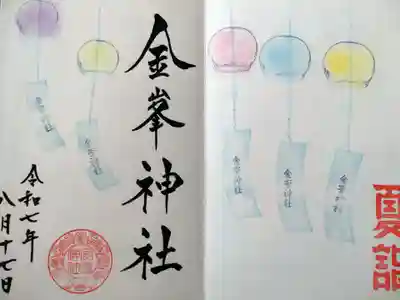 夏詣
金峯神社
令和七年
八月十七日
金峯神社
金峯神社
金峯神社
金峯神社